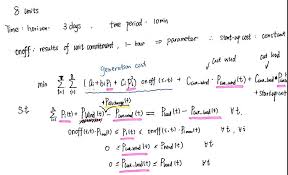 8 units
Time: horizon 3 days. time period: 10min
onoff: results of unit commitment, 1- bar => parameter start-up cost: constant
generation cost cut wind cut load
min Σ Σ (a+bPi+CPi) onoff(i,t) + Ccur_wind · Pcur_wind(t) + Ccut_load
+ startupcost
s.t. + Pdischarge(t)
Σ Pi(t) + Pwind(t) - Pcur_wind(t) = Pload(t) - Pcut_load(t) ∀t.
onoff(i,t)·Pimin(t) ≤ Pi(t) ≤ onoff(i,t)·Pimax(t) ∀t, ∀i
0 ≤ Pcur_wind(t) ≤ Pwind(t) ∀t
0 ≤ Pcut_load(t) ≤ Pload(t) ∀t